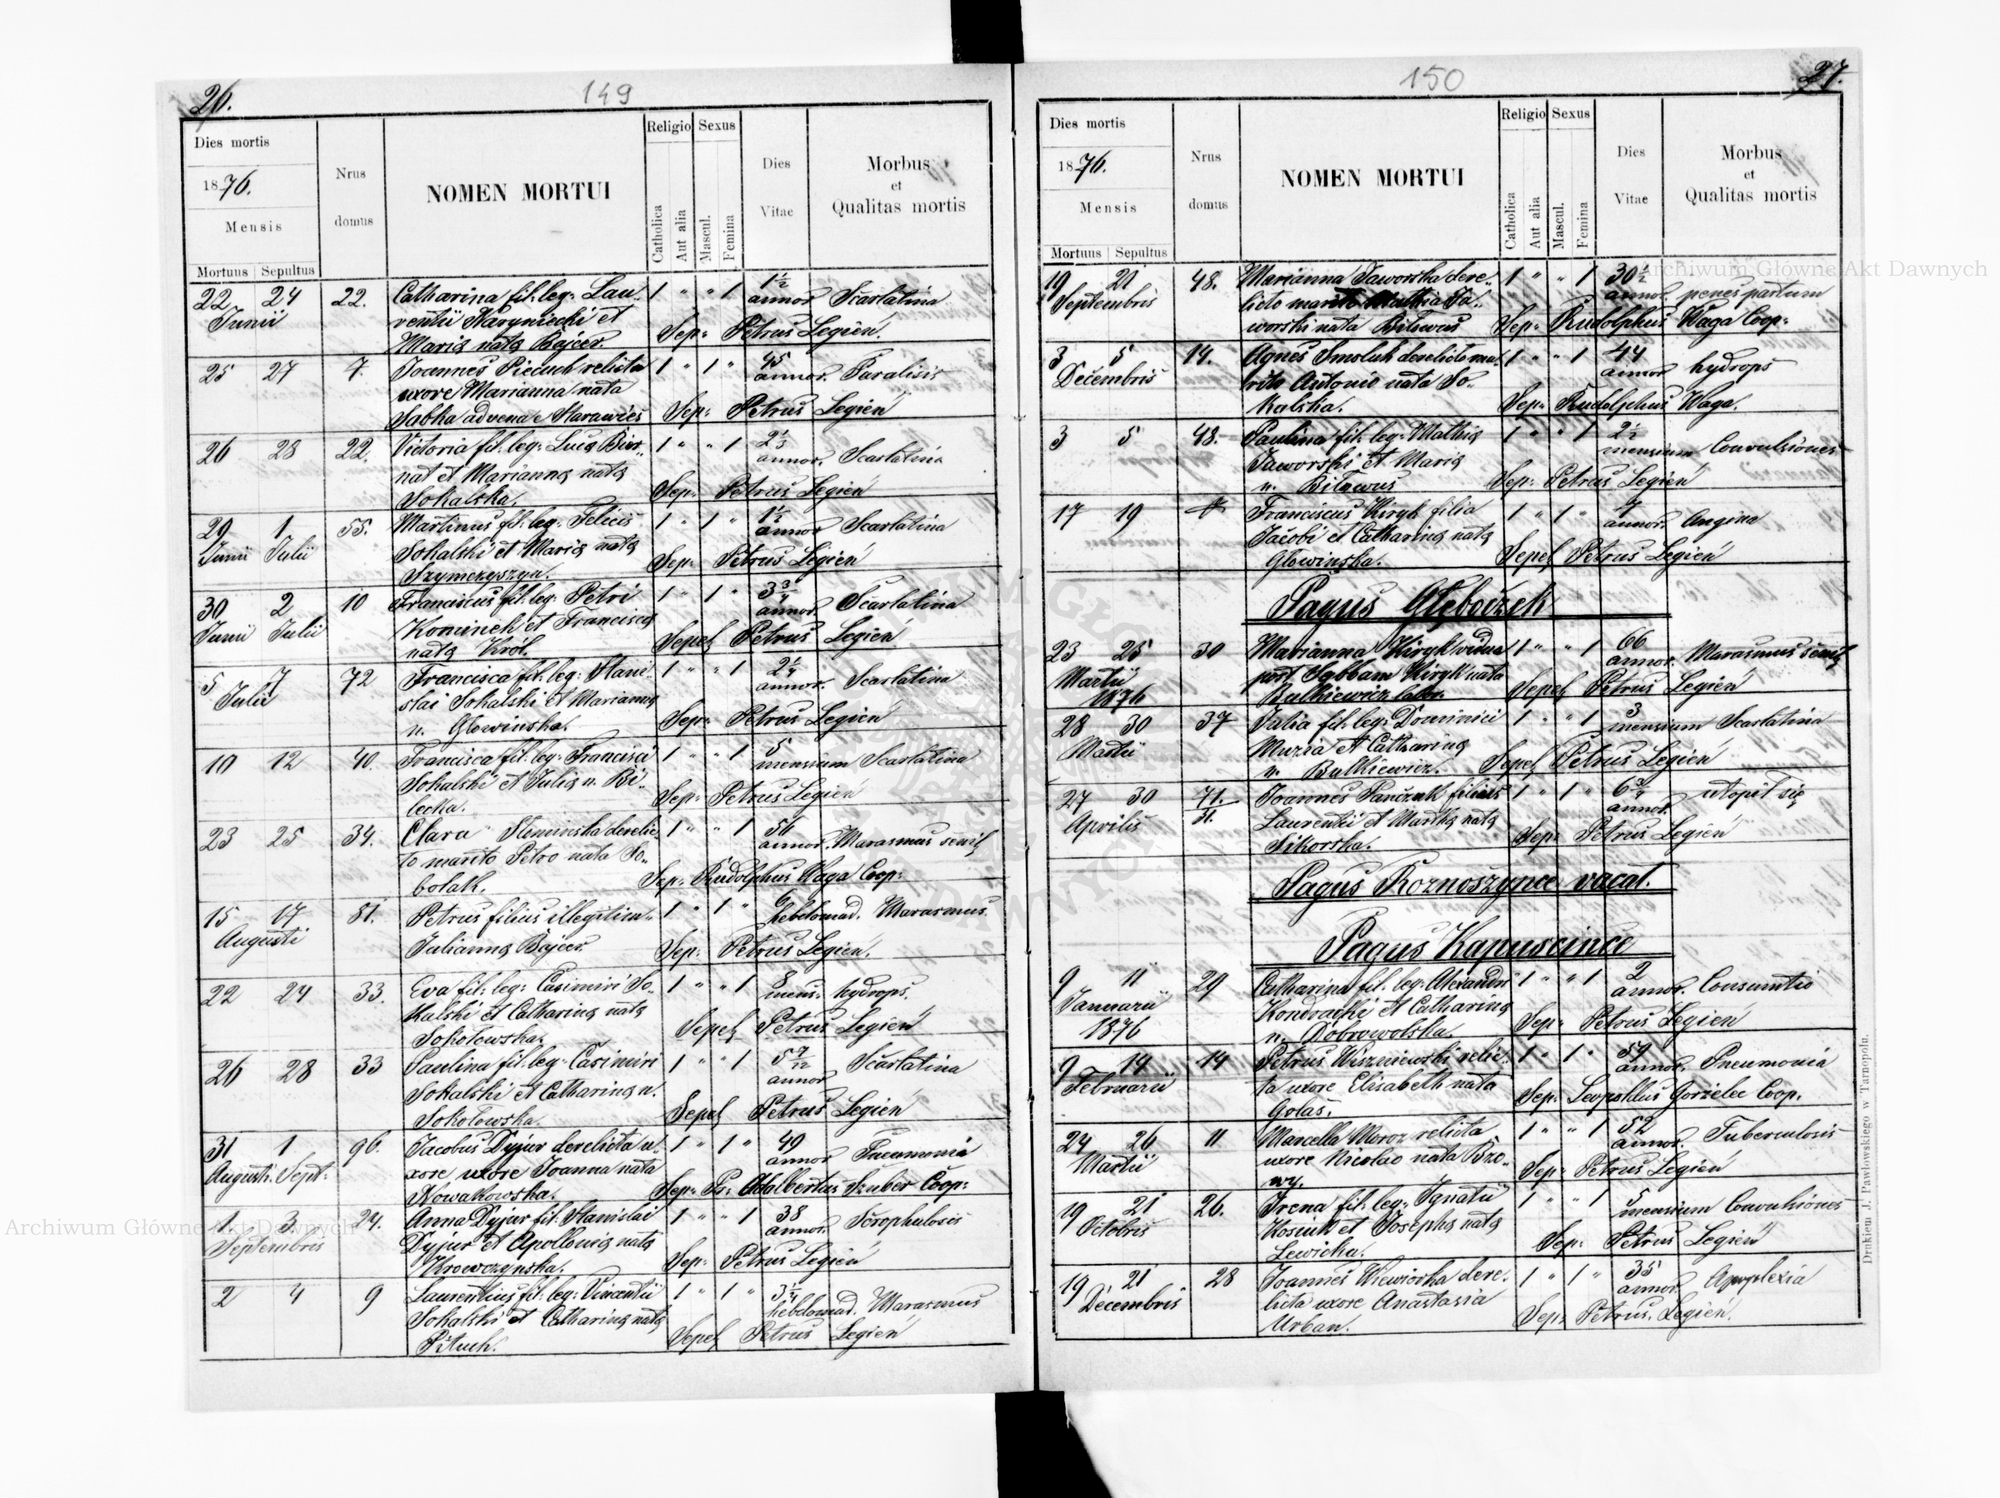 26.
149
Dies mortis
1876.
Mensis
Mortuus Sepultus
Nrus
domus
NOMEN MORTUI
Religio
Catholica
Aut alia
Sexus
Mascul.
Femina
Dies
Vitae
Morbus
et
Qualitas mortis
22 24 22. Catharina fil: leg: Lau- 1 " " 1 1½
Junii rentii Naryniecki et annor Scarlatina
Maria nata Bajcer Sep: Petrus Legień.
25 27 7. Joannes Pieciuch relicta 1 " 1 " 45
uxore Marianna nata annor. Paralisis
Sabka advena e Starawieś Sep: Petrus Legień
26 28 22. Victoria fil: leg: Luca 1 " " 1 2⅓
nat et Marianna nata annor. Scarlatina
Sokalska. Sep: Petrus Legień
29 1 55. Martinus fil: leg: Felicis 1 " 1 " 1½
Junii Julii Sokalski et Maria nata annor Scarlatina
Szymczyszyn. Sep: Petrus Legień
30 2 10 Franciscus fil: leg: Petri 1 " 1 " 3¾
Junii Julii Kominek et Francisca annor. Scarlatina
nata Król. Sepel Petrus Legień
5 7 72 Francisca fil: leg: Stani- 1 " " 1 2¼
Julii slai Sokalski et Marianna annor. Scarlatina
n. Głowinska. Sep: Petrus Legień
10 12 40. Francisca fil: leg: Francisci 1 " " 1 5
Sokalski et Julia n. Bi- mensium Scarlatina
lecka. Sep: Petrus Legień
23 25 34. Clara Słominska derelic- 1 " " 1 56
to marito Petro nata So- annor. Marasmus senil
bolak. Sep: Rudolphus Waga Coop:
15 17 81. Petrus filius illegitim- 1 " 1 " 6
Augusti Julianna Bajcer hebdomad. Marasmus.
Sep: Petrus Legień.
22 24 33. Eva fil: leg: Casimiri So- 1 " " 1 8
kalski et Catharina nata mens: hydrops.
Sokołowska. Sepel Petrus Legień
26 28 33 Paulina fil: leg: Casimiri 1 " " 1 5 7/12
Sokalski et Catharina n. annor Scarlatina
Sokołowska. Sepel Petrus Legień
31 1 96. Jacobus Dyjur derelicta u- 1 " 1 " 49
Augusti. Sept: xore uxore Joanna nata annor Pneumonia
Nowakowska. Sep: Pr: Adalbertus Szuber Coop:
1. 3. 24. Anna Dyjur fil: Stanislai 1 " " 1 38
Septembris Dyjur et Apollonia nata annor. Scrophulosis
Krowczynska. Sep: Petrus Legień
2 4 9 Laurentius fil: leg: Vincentii 1 " 1 " 3¼
Sokalski et Catharina nata hebdomad. Marasmus
Pituch. Sepel Petrus Legień
150
27.
Dies mortis
1876.
Mensis
Mortuus Sepultus
Nrus
domus
NOMEN MORTUI
Religio
Catholica
Aut alia
Sexus
Mascul.
Femina
Dies
Vitae
Morbus
et
Qualitas mortis
19 21 48. Marianna Jaworska dere- 1 " " 1 30½
Septembris licto marito Mathia Ja- annor. penes partum
worski nata Bilowus Sep: Rudolphus Waga Coop:
3 5 14. Agnes Smoluk derelicto ma- 1 " " 1 44
Decembris rito Antonio nata So- annor hydrops
kalska. Sep: Rudolphus Waga.
3 5 48. Paulina fil: leg: Mathia 1 " " 1 2½
Jaworski et Maria mensium Convulsiones
n. Bilowus Sep: Petrus Legień
17 19 Franciscus Kiryk filia 1 " 1 " 7
Jacobi et Catharina nata annor. Angina
Głowinska. Sepel Petrus Legień
Pagus Głęboczek
23 25 30 Marianna Kiryk vidua 1 " " 1 66
Martii post Sabbam Kiryk nata annor. Marasmus senil
1876 Bulkiewicz labor. Sepel Petrus Legień
28 30 37 Julia fil: leg: Dominici 1 " " 1 3
Martii Muzia et Catharina mensium Scarlatina
n. Bulkiewicz. Sepel Petrus Legień
27 30 71. Joannes Panczuk filius 1 " 1 "
Aprilis 31. Laurentii et Martha nata annor. utopił się
Sikorska. Sep: Petrus Legień
Pagus Koznoszynce vacat.
Pagus Kapuscince
9 11 29 Catharina fil: leg: Alexandri 1 " " 1 2
Januarii Kondracki et Catharina annor. Consumtio
1876 n. Dobrowolska. Sep: Petrus Legień
9 14 14 Petrus Wiszniewski relic- 1 " 1 " 54
Februarii ta uxore Elisabeth nata annor. Pneumonia
Gołas. Sep: Leopoldus Gorzelec Coop.
24 26 11 Marcella Moroz relicta 1 " " 1 52
Martii uxore Nicolao nata annor. Tuberculosis
Sep: Petrus Legień
19 21 26. Irena fil: leg: Ignatii 1 " " 1 5
Octobris Kosiuk et Josepha nata mensium Convulsiones
Lewicka. Sep: Petrus Legień
19 21 28 Joannes Wiewiorka dere- 1 " 1 " 35
Decembris licta uxore Anastasia annor. Apoplexia
Urban. Sep: Petrus. Legień.
Drukiem J. Pawłowskiego w Tarnopolu.
Archiwum Główne Akt Dawnych
Archiwum Główne Akt Dawnych